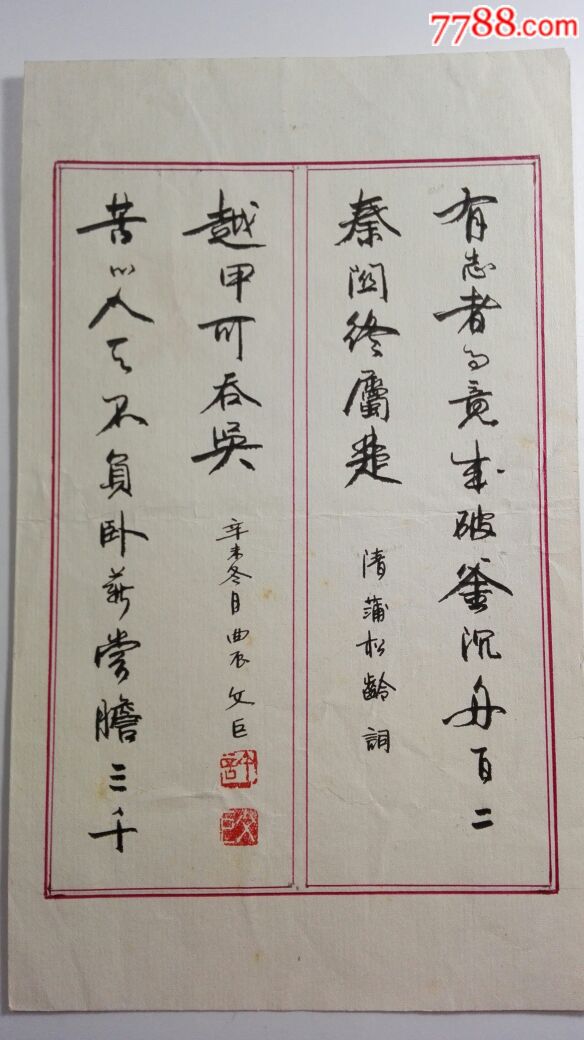 7788.com
有志者事竟成破釜沉舟百二
秦関終屬楚
清蒲松齡詞
苦心人天不負卧薪嘗膽三千
越甲可吞吳
辛未冬月農文巨
許